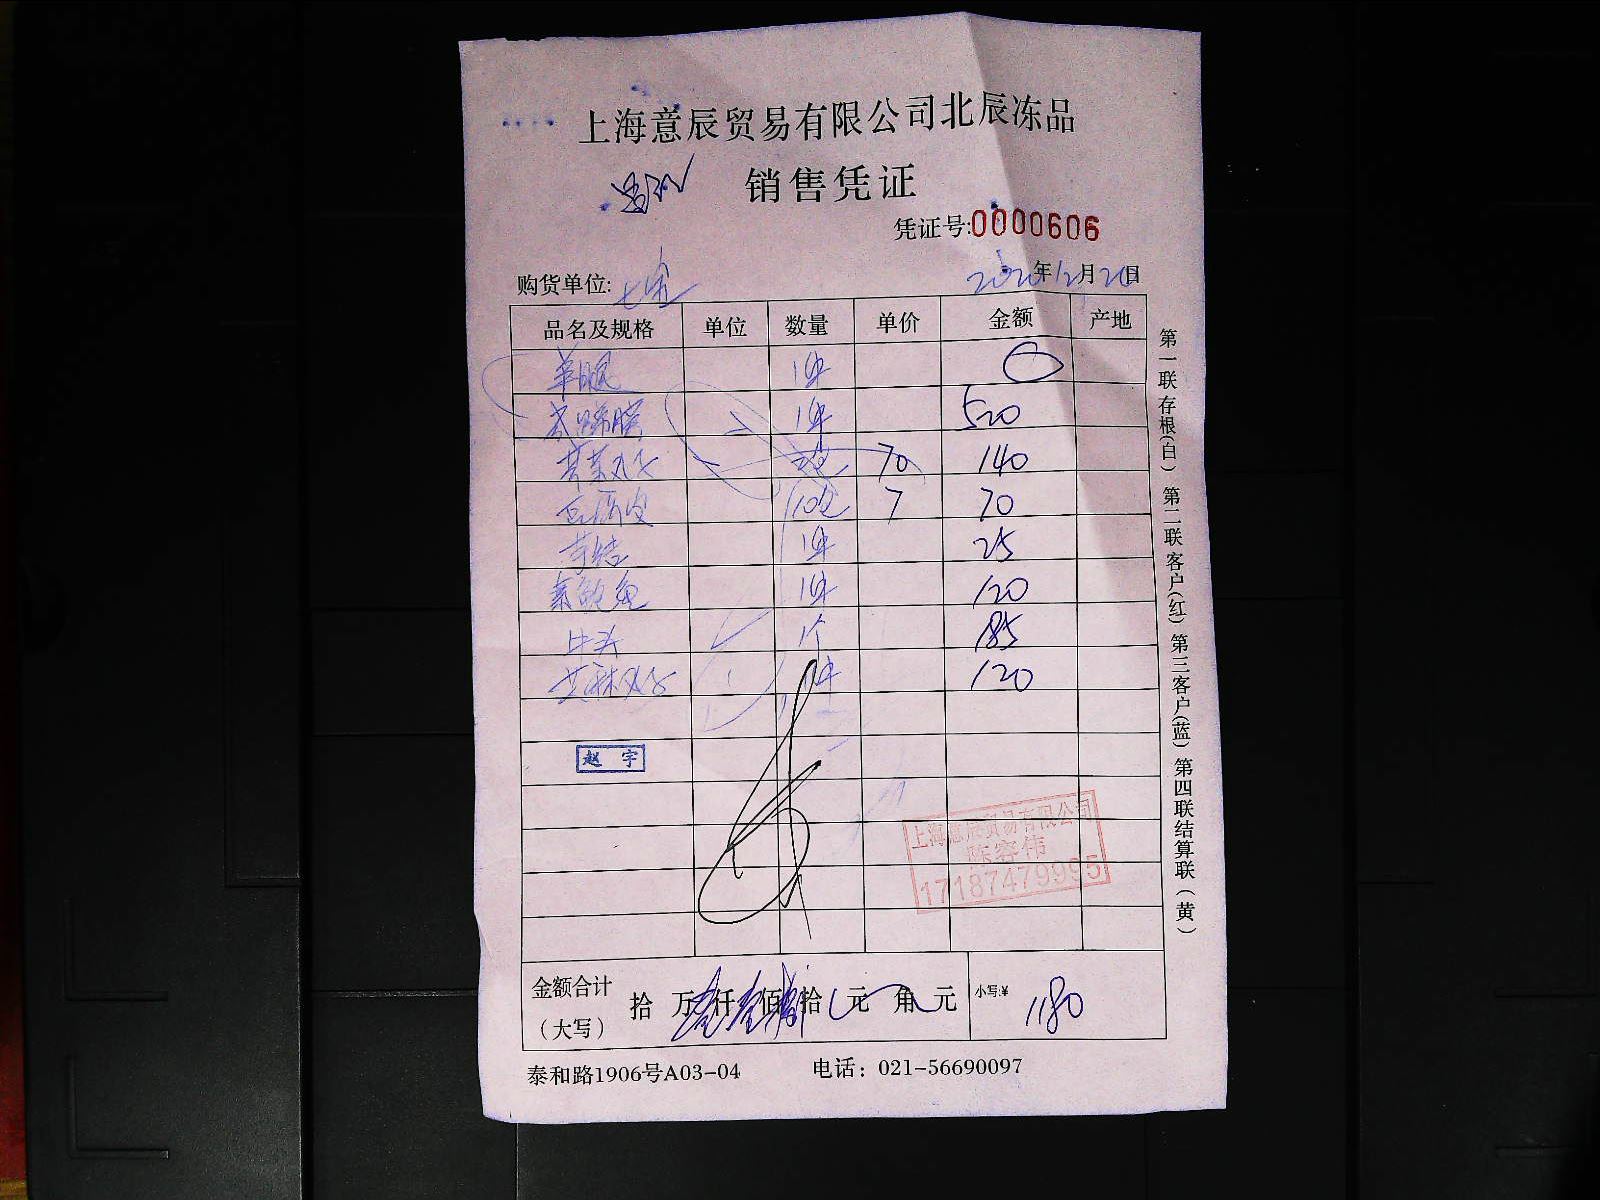 上海意辰贸易有限公司北辰冻品
销售凭证
凭证号:0000606
购货单位:七宝 2020年12月20日
品名及规格 单位 数量 单价 金额 产地
羊腿 1件 0
1件 520
荠菜丸子 2包 70 140
10包 7 70
1件 25
素鲍鱼 1件 120
牛头 1个 185
1件 120
赵宇
上海意辰贸易有限公司
陈容伟
17187479995
金额合计(大写) 拾 万壹仟壹佰捌拾 元 角 元 小写:¥ 1180
泰和路1906号A03-04 电话:021-56690097
第一联存根(白) 第二联客户(红) 第三客户(蓝) 第四联结算联(黄)